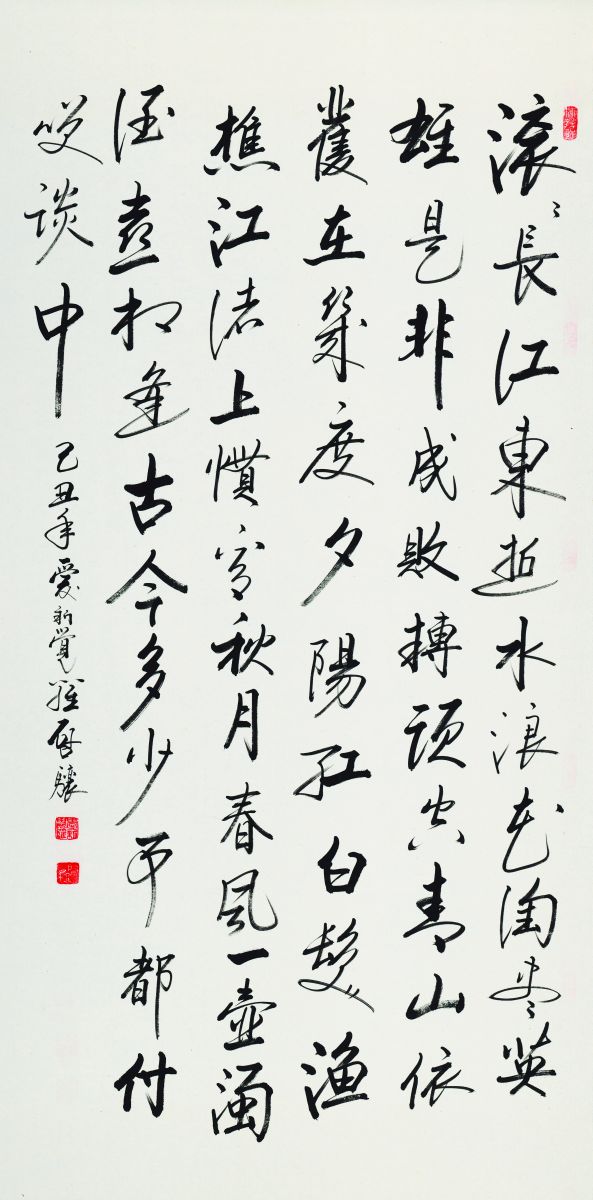 滚々長江東逝水浪花淘盡英
雄是非成敗轉頭空青山依
舊在幾度夕陽紅白髮漁
樵江渚上慣看秋月春風一壺濁
酒喜相逢古今多少事都付
笑談中 己丑年愛新覺羅啓驤